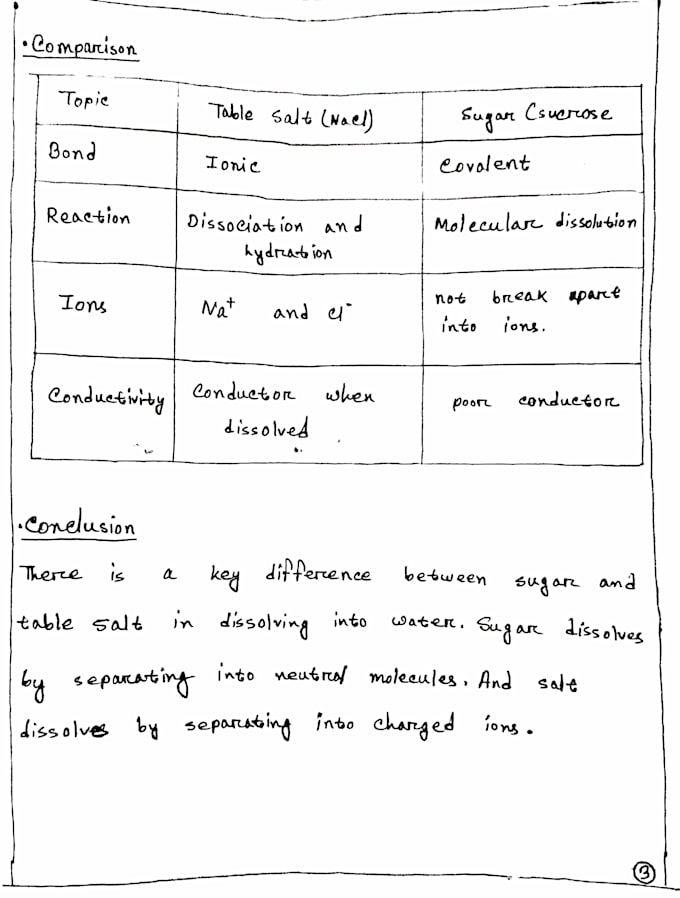 • Comparison
Topic
Table Salt (NaCl)
Sugar (sucrose
Bond
Ionic
Covalent
Reaction
Dissociation and
hydration
Molecular dissolution
Ions
Na⁺ and Cl⁻
not break apart
into ions.
Conductivity
Conductor when
dissolved
poor conductor
• Conclusion
There is a key difference between sugar and
table salt in dissolving into water. Sugar dissolves
by separating into neutral molecules. And salt
dissolves by separating into charged ions.
3